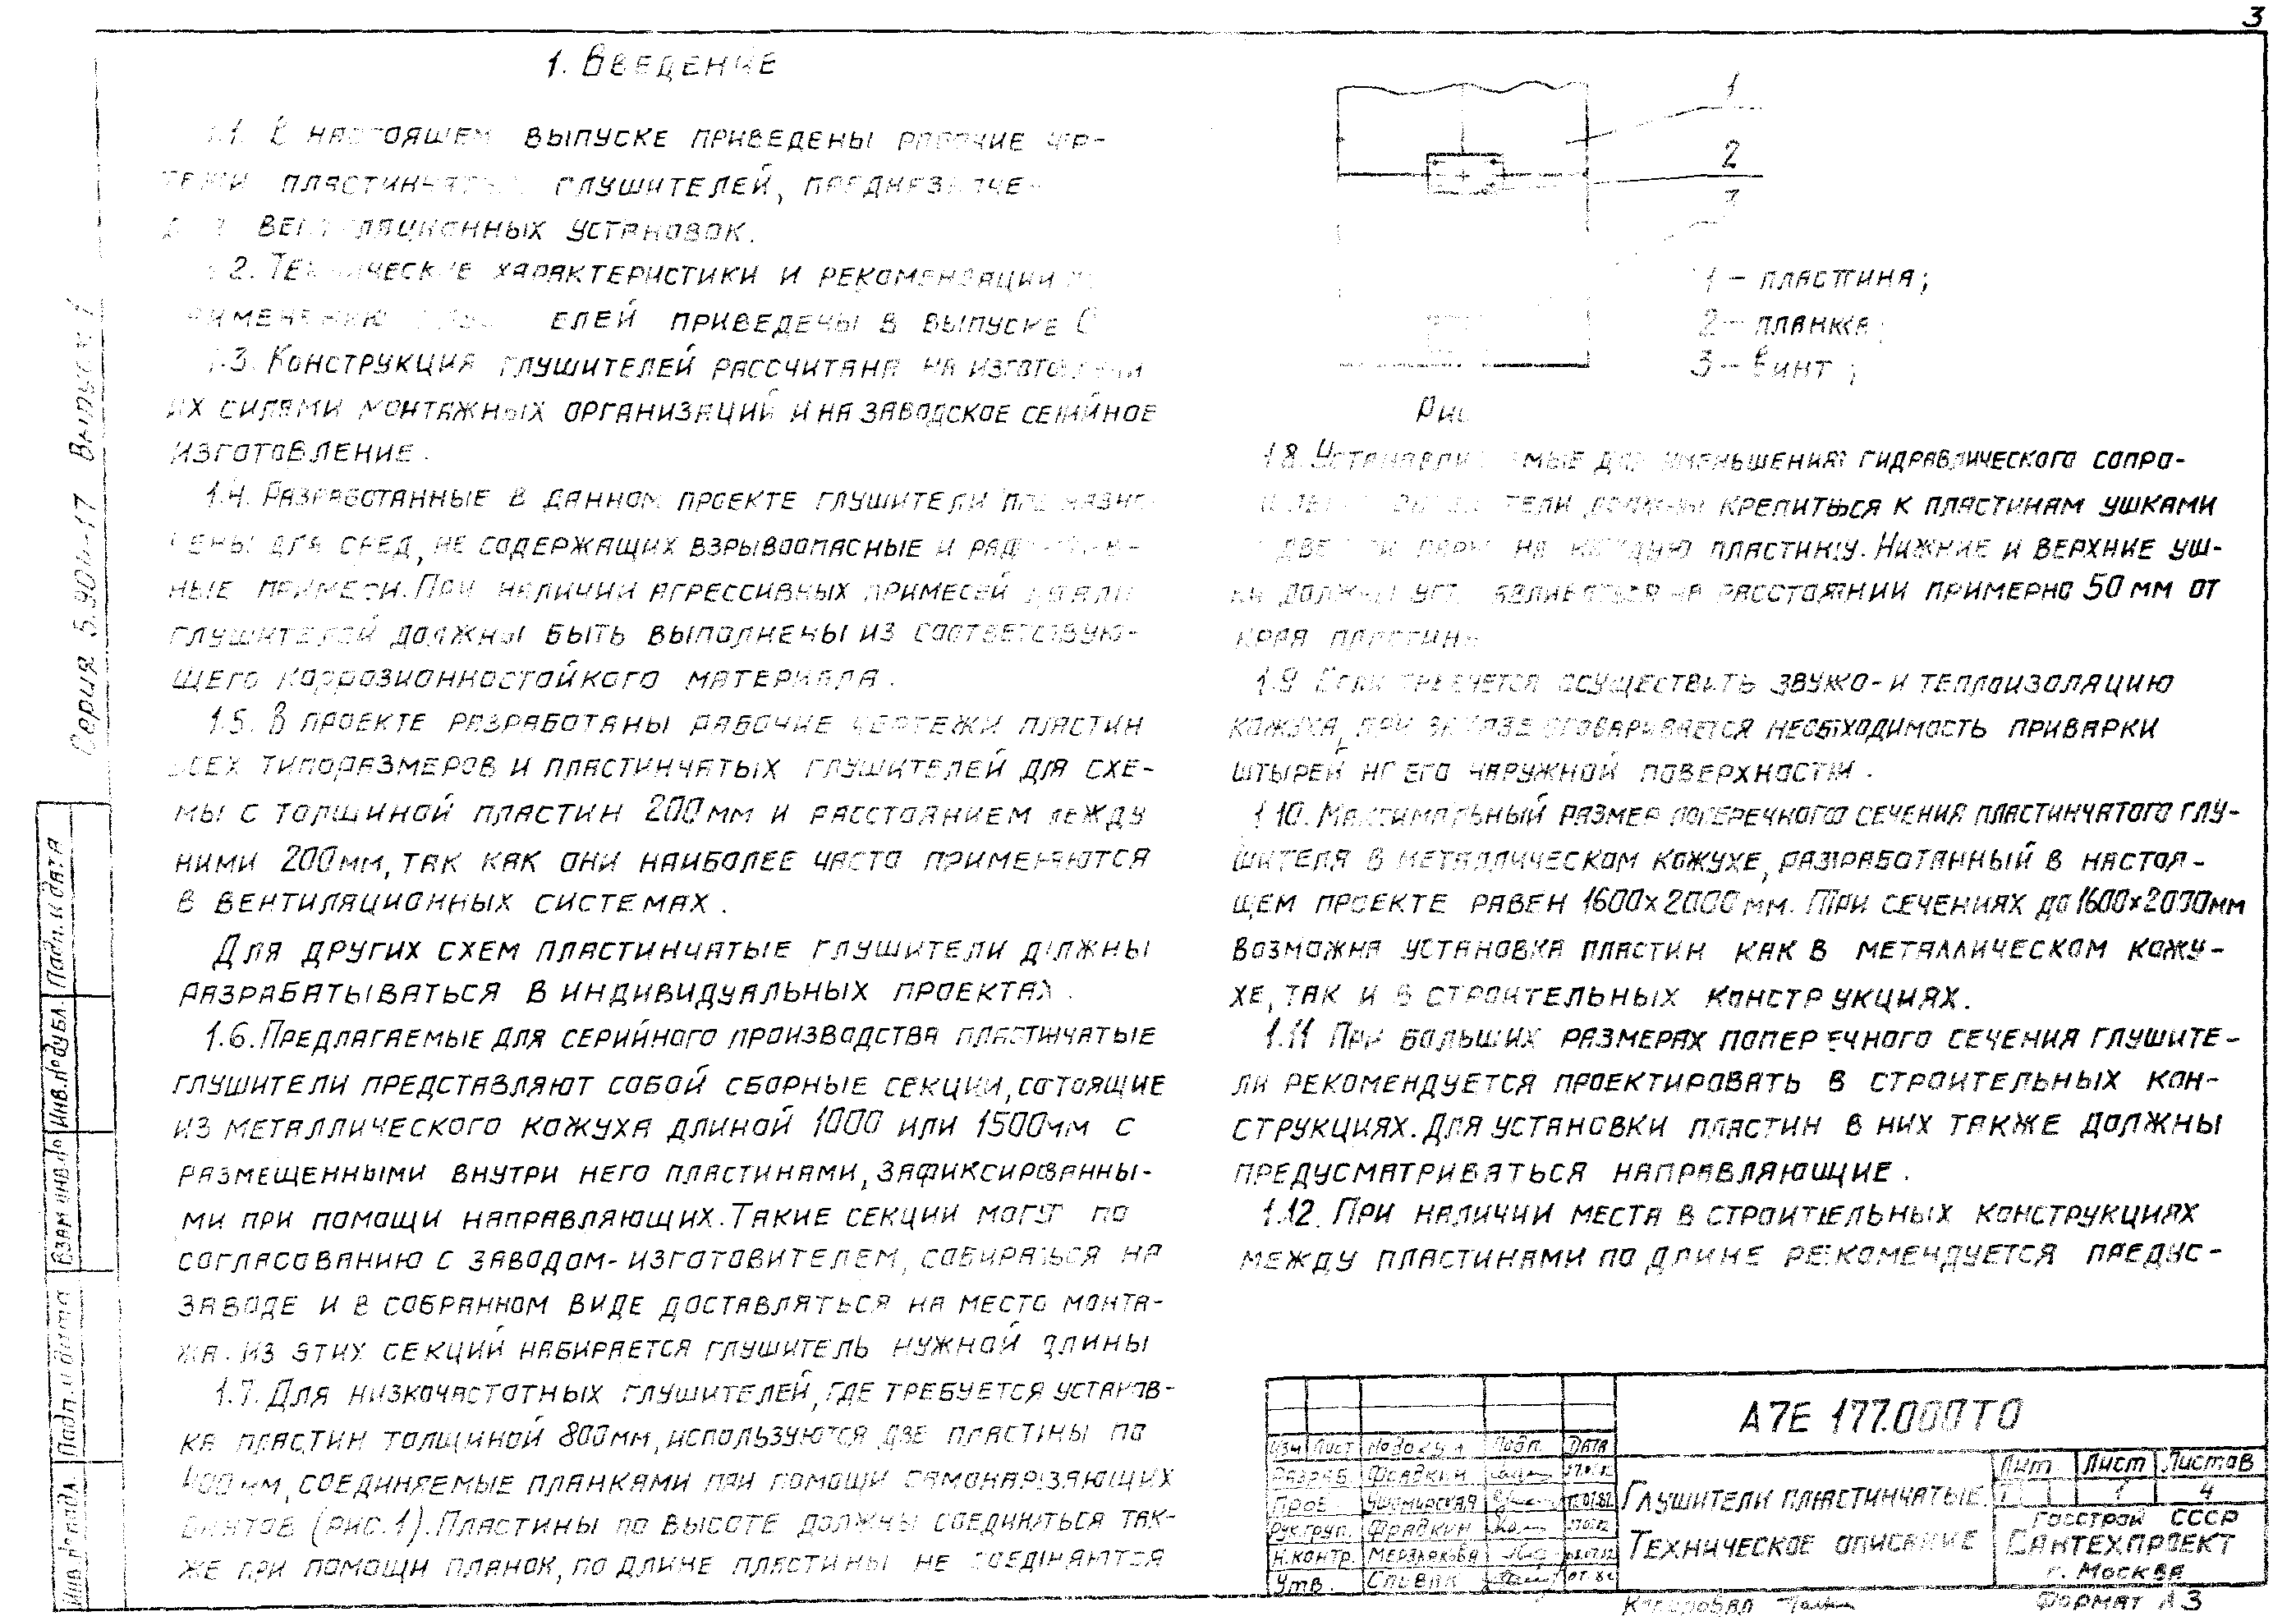 3
1. Введение
1.1. В настоящем выпуске приведены рабочие чер-
тежи пластинчатых глушителей, предназначе-
для вентиляционных установок.
1.2. Технические характеристики и рекомендации по
применению глушителей приведены в выпуске 0
1.3. Конструкция глушителей рассчитана на изготовление
их силами монтажных организаций и на заводское серийное
изготовление.
1.4. Разработанные в данном проекте глушители предназна-
чены для сред, не содержащих взрывоопасные и
ные примеси. При наличии агрессивных примесей детали
глушителей должны быть выполнены из соответствую-
щего коррозионностойкого материала.
1.5. В проекте разработаны рабочие чертежи пластин
всех типоразмеров и пластинчатых глушителей для схе-
мы с толщиной пластин 200мм и расстоянием между
ними 200мм, так как они наиболее часто применяются
в вентиляционных системах.
Для других схем пластинчатые глушители должны
разрабатываться в индивидуальных проектах.
1.6. Предлагаемые для серийного производства пластинчатые
глушители представляют собой сборные секции, сотоящие
из металлического кожуха длиной 1000 или 1500мм с
размещенными внутри него пластинами, зафиксированны-
ми при помощи направляющих. Такие секции могут по
согласованию с заводом-изготовителем, собираться на
заводе и в собранном виде доставляться на место монта-
жа. Из этих секций набирается глушитель нужной длины
1.7. Для низкочастотных глушителей, где требуется установ-
ка пластин толщиной 800мм, используются две пластины по
400мм, соединяемые планками при помощи самонарезающих
винтов (рис.1). Пластины по высоте должны соединяться так-
же при помощи планок, по длине пластины не соединяются
1
2
3
1 - пластина;
2 - планка;
3 - винт;
Рис
1.8. Устанавливаемые для уменьшения гидравлического сопро-
должны крепиться к пластинам ушками
две пары на каждую пластину. Нижние и верхние уш-
ки должны устанавливаться на расстоянии примерно 50мм от
края пластины
1.9 Если требуется осуществить звуко- и теплоизоляцию
кожуха, при заказе оговаривается необходимость приварки
штырей на его наружной поверхности.
1.10. Максимальный размер поперечного сечения пластинчатого глу-
шителя в металлическом кожухе, разработанный в настоя-
щем проекте равен 1600×2000мм. При сечениях до 1600×2000мм
возможна установка пластин как в металлическом кожу-
хе, так и в строительных конструкциях.
1.11 При больших размерах поперечного сечения глушите-
ли рекомендуется проектировать в строительных кон-
струкциях. Для установки пластин в них также должны
предусматриваться направляющие.
1.12. При наличии места в строительных конструкциях
между пластинами по длине рекомендуется предус-
Серия 5.904-17 Выпуск 1
Подп. и дата
Инв.№дубл
Взам инв.№
Подп. и дата
Инв.№подл
А7Е 177.000ТО
Изм Лист №докум Подп. Дата
Разраб. Фрадкин
Пров. Ушомирская
Рук.груп. Фрадкин
Н.контр. Мерзлякова
Утв. Спивак
Глушители пластинчатые.
Техническое описание
Лит. Лист Листов
1 4
Госстрой СССР
Сантехпроект
г. Москва
Копировал
Формат А3